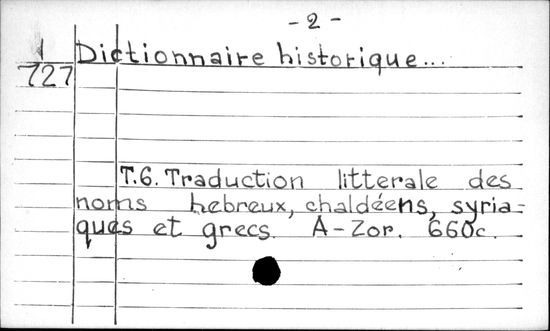 - 2 -
1 Dictionnaire historique...
727
T.6. Traduction litterale des
noms hebreux, chaldéens, syria=
ques et grecs. A-Zor. 660c.